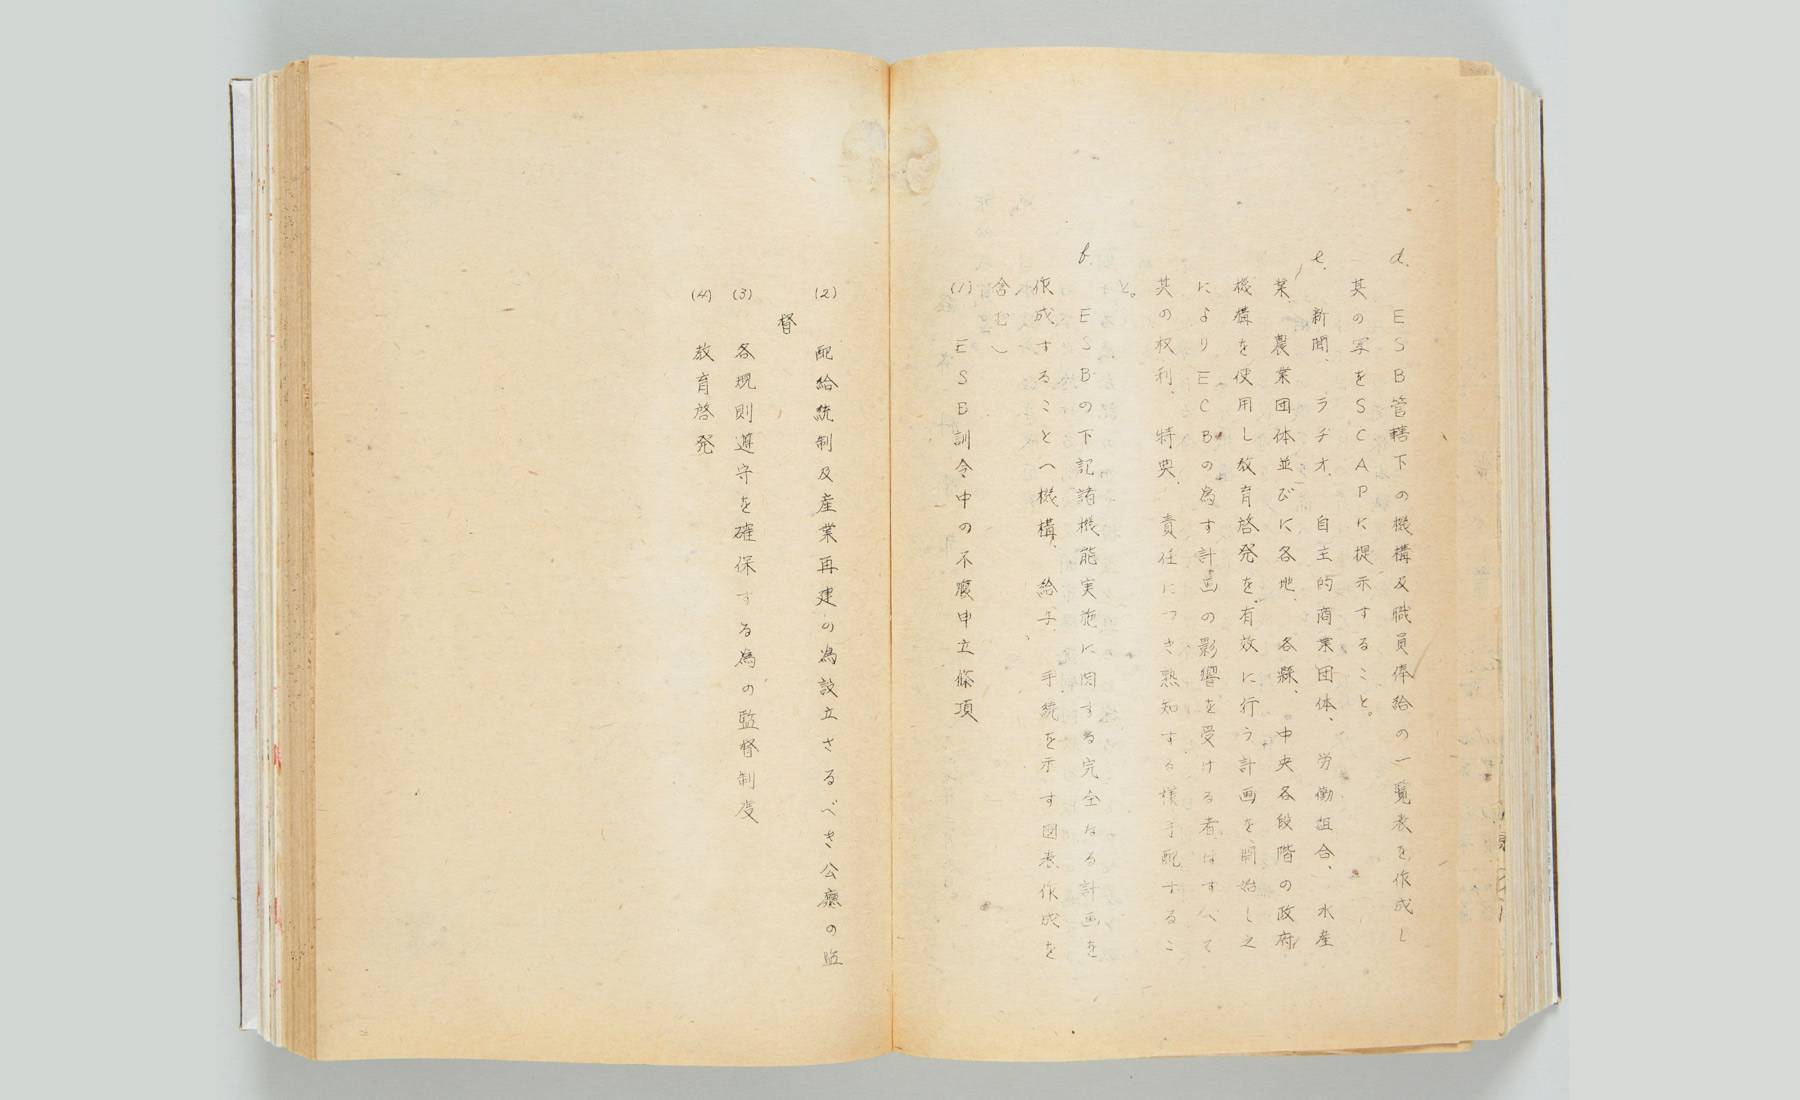 d. ESB管轄下の機構及職員俸給の一覧表を作成し
其の写をSCAPに提示すること。
e. 新聞、ラヂオ、自主的商業団体、労働組合、水産
業、農業団体並びに各地、各縣、中央各段階の政府
機構を使用し教育啓発を有效に行う計画を開始し之
によりECBの為す計画の影響を受ける者はすべて
其の权利、特典、責任につき熟知する様手配するこ
と。
f. ESBの下記諸機能実施に関する完全なる計画を
作成すること(機構、給与、手続を示す図表作成を
含む)
(1) ESB訓令中の不服申立條項
(2) 配給統制及産業再建の為設立さるべき公廳の監
督
(3) 各規則遵守を確保する為の監督制度
(4) 教育啓発